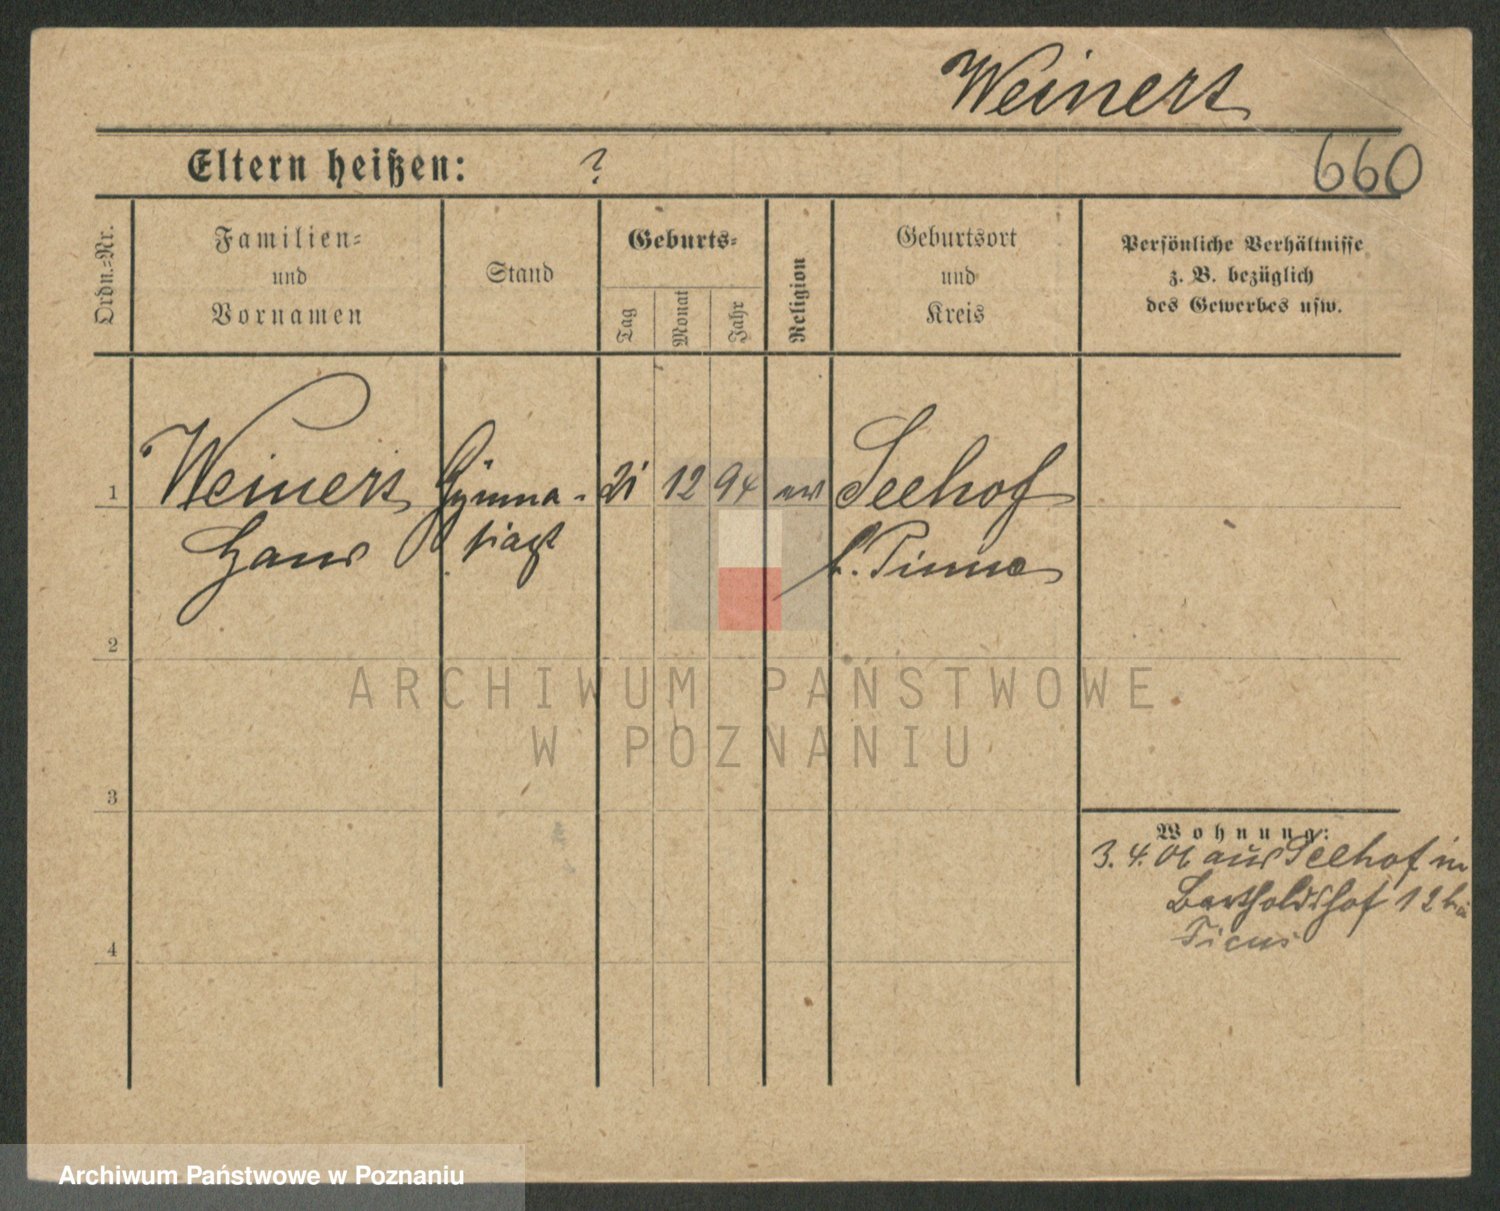 Weinert
Eltern heißen: ?
660
Ordn.-Nr.
Familien-
und
Vornamen
Stand
Geburts-
Tag
Monat
Jahr
Religion
Geburtsort
und
Kreis
Persönliche Verhältnisse
z. B. bezüglich
des Gewerbes usw.
1
Weinert
Hans
Gymna-
siast
21
12
94
ev
Seehof
b. Pinne
2
3
4
Wohnung:
3. 4. 06 aus Seehof in
Bartholdshof 12 bei
ARCHIWUM PAŃSTWOWE
W POZNANIU
Archiwum Państwowe w Poznaniu